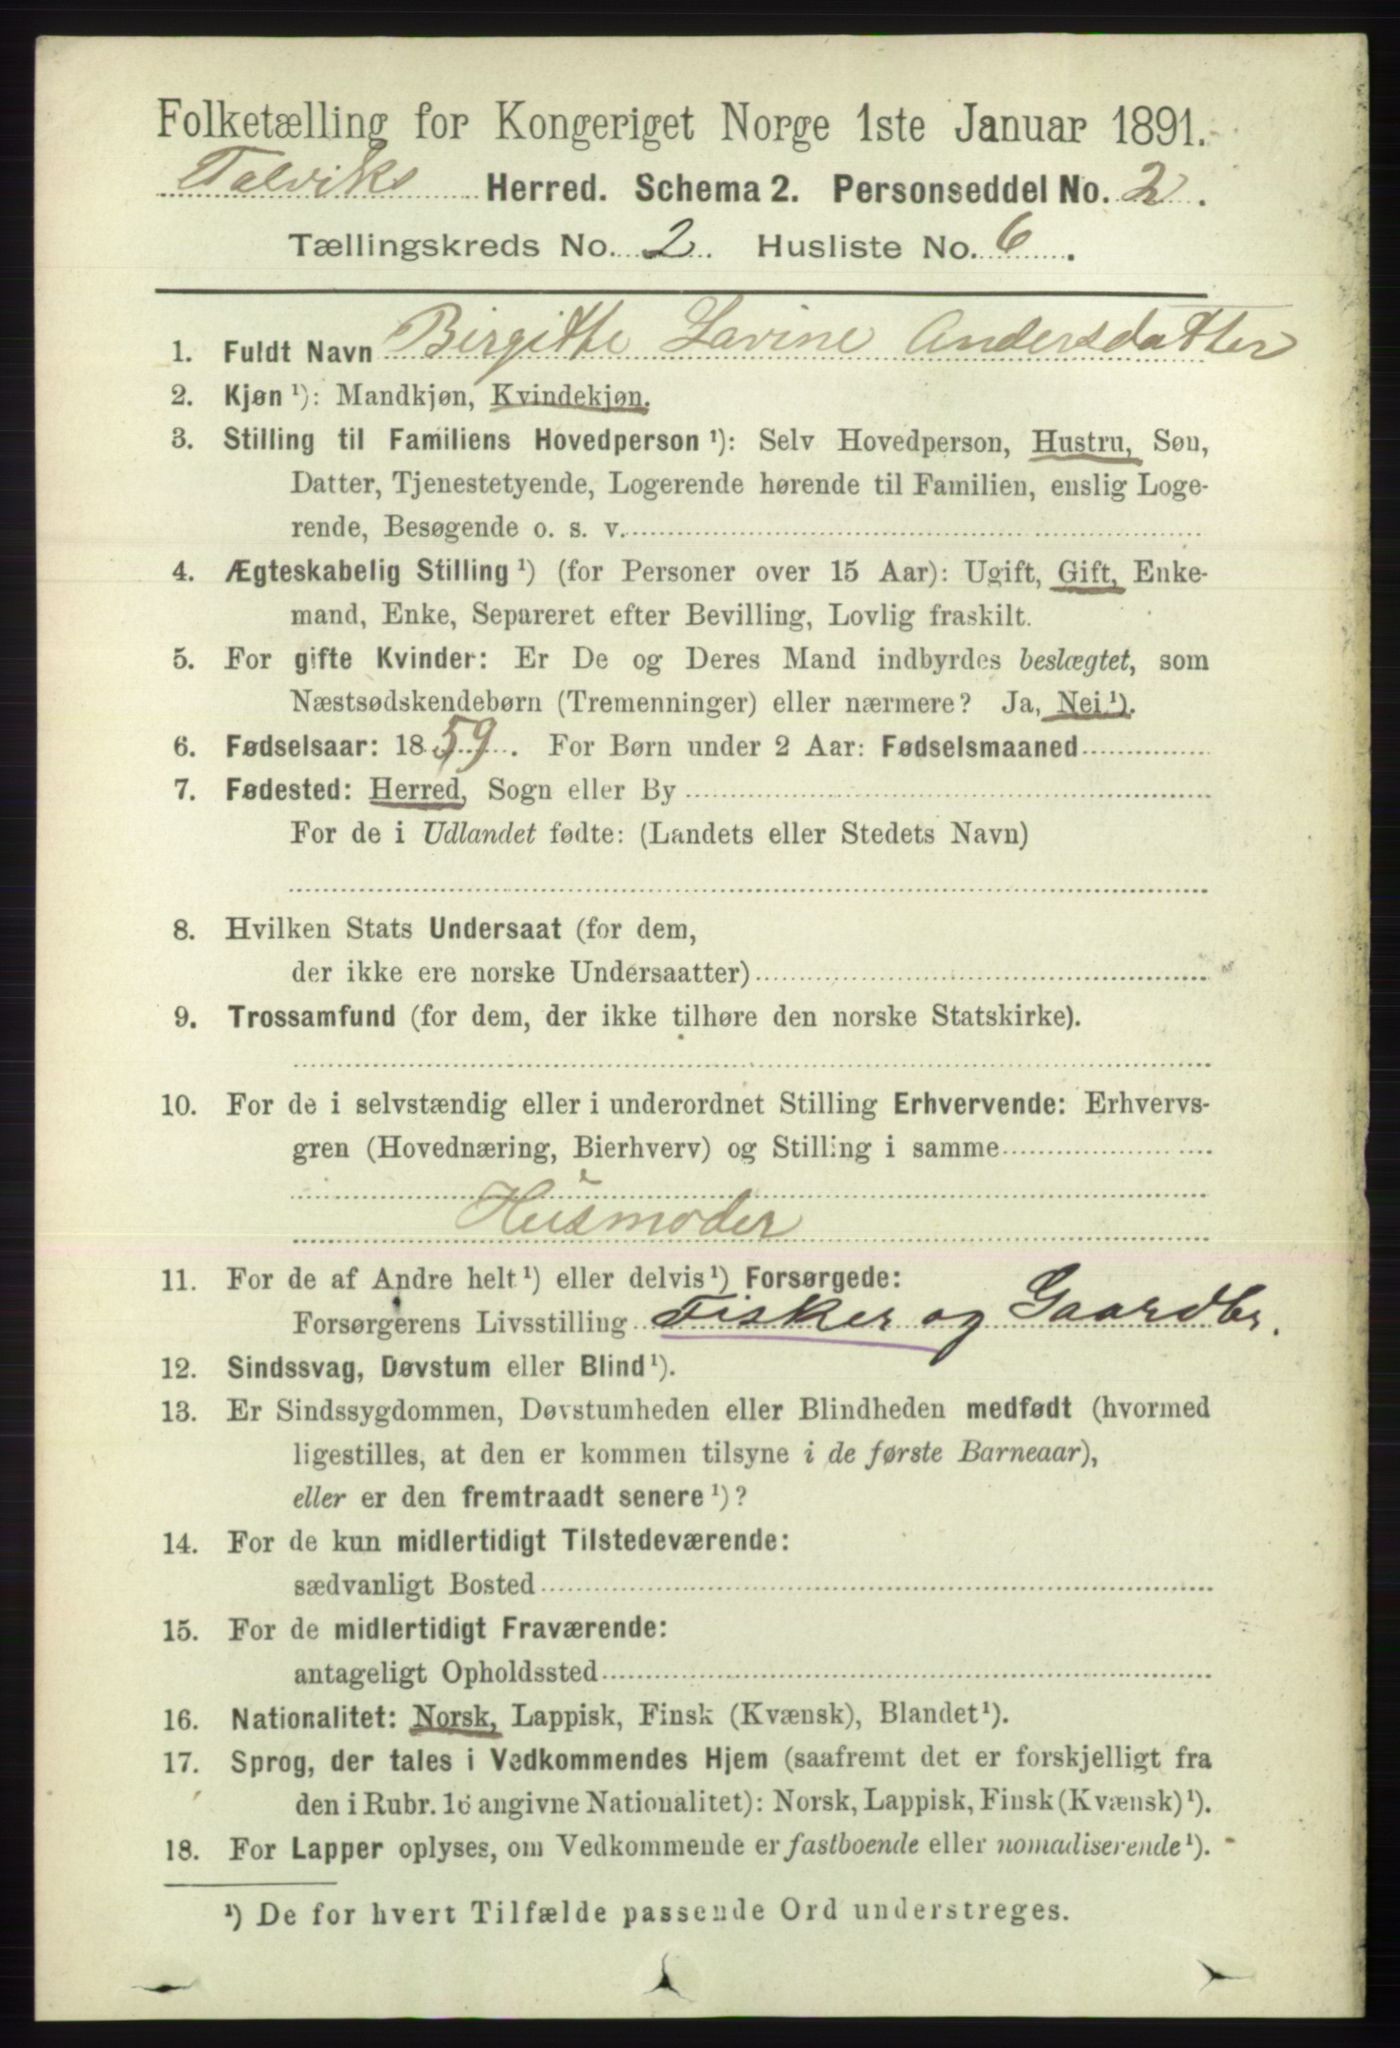 Folketælling for Kongeriget Norge 1ste Januar 1891.
Talviks Herred. Schema 2. Personseddel No. 2.
Tællingskreds No. 2. Husliste No. 6.
1. Fuldt Navn Birgitte Lavine Andersdatter
2. Kjøn ¹): Mandkjøn, Kvindekjøn.
3. Stilling til Familiens Hovedperson ¹): Selv Hovedperson, Hustru, Søn,
Datter, Tjenestetyende, Logerende hørende til Familien, enslig Loge-
rende, Besøgende o. s. v.
4. Ægteskabelig Stilling ¹) (for Personer over 15 Aar): Ugift, Gift, Enke-
mand, Enke, Separeret efter Bevilling, Lovlig fraskilt.
5. For gifte Kvinder: Er De og Deres Mand indbyrdes beslægtet, som
Næstsødskendebørn (Tremenninger) eller nærmere? Ja, Nei ¹).
6. Fødselsaar: 1859. For Børn under 2 Aar: Fødselsmaaned
7. Fødested: Herred, Sogn eller By
For de i Udlandet fødte: (Landets eller Stedets Navn)
8. Hvilken Stats Undersaat (for dem,
der ikke ere norske Undersaatter)
9. Trossamfund (for dem, der ikke tilhøre den norske Statskirke).
10. For de i selvstændig eller i underordnet Stilling Erhvervende: Erhvervs-
gren (Hovednæring, Bierhverv) og Stilling i samme
Husmoder
11. For de af Andre helt ¹) eller delvis ¹) Forsørgede:
Forsørgerens Livsstilling Fisker og Gaardbr.
12. Sindssvag, Døvstum eller Blind ¹).
13. Er Sindssygdommen, Døvstumheden eller Blindheden medfødt (hvormed
ligestilles, at den er kommen tilsyne i de første Barneaar),
eller er den fremtraadt senere ¹)?
14. For de kun midlertidigt Tilstedeværende:
sædvanligt Bosted
15. For de midlertidigt Fraværende:
antageligt Opholdssted
16. Nationalitet: Norsk, Lappisk, Finsk (Kvænsk), Blandet ¹).
17. Sprog, der tales i Vedkommendes Hjem (saafremt det er forskjelligt fra
den i Rubr. 16 angivne Nationalitet): Norsk, Lappisk, Finsk (Kvænsk) ¹).
18. For Lapper oplyses, om Vedkommende er fastboende eller nomadiserende ¹).
¹) De for hvert Tilfælde passende Ord understreges.